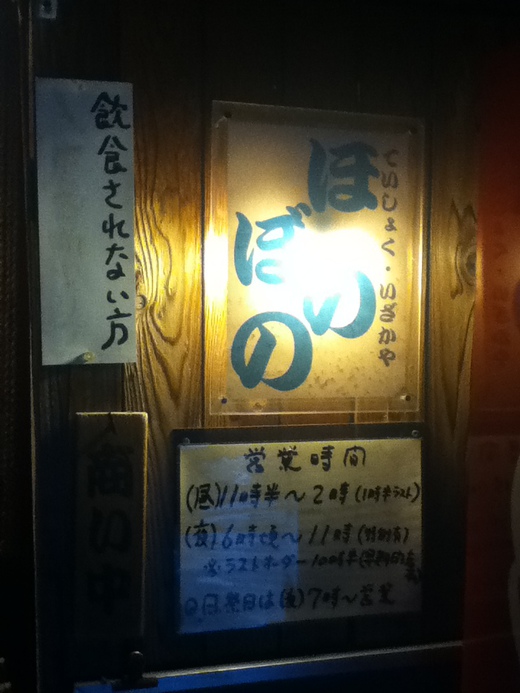 飲食されない方
ていしょく・いざかや
ほの
ぼの
営業時間
(昼)11時半～2時(1時半ラスト)
(夜)6時頃～11時(特別有)
※ラストオーダー10時半
日、祭日は(夜)7時～営業
い中